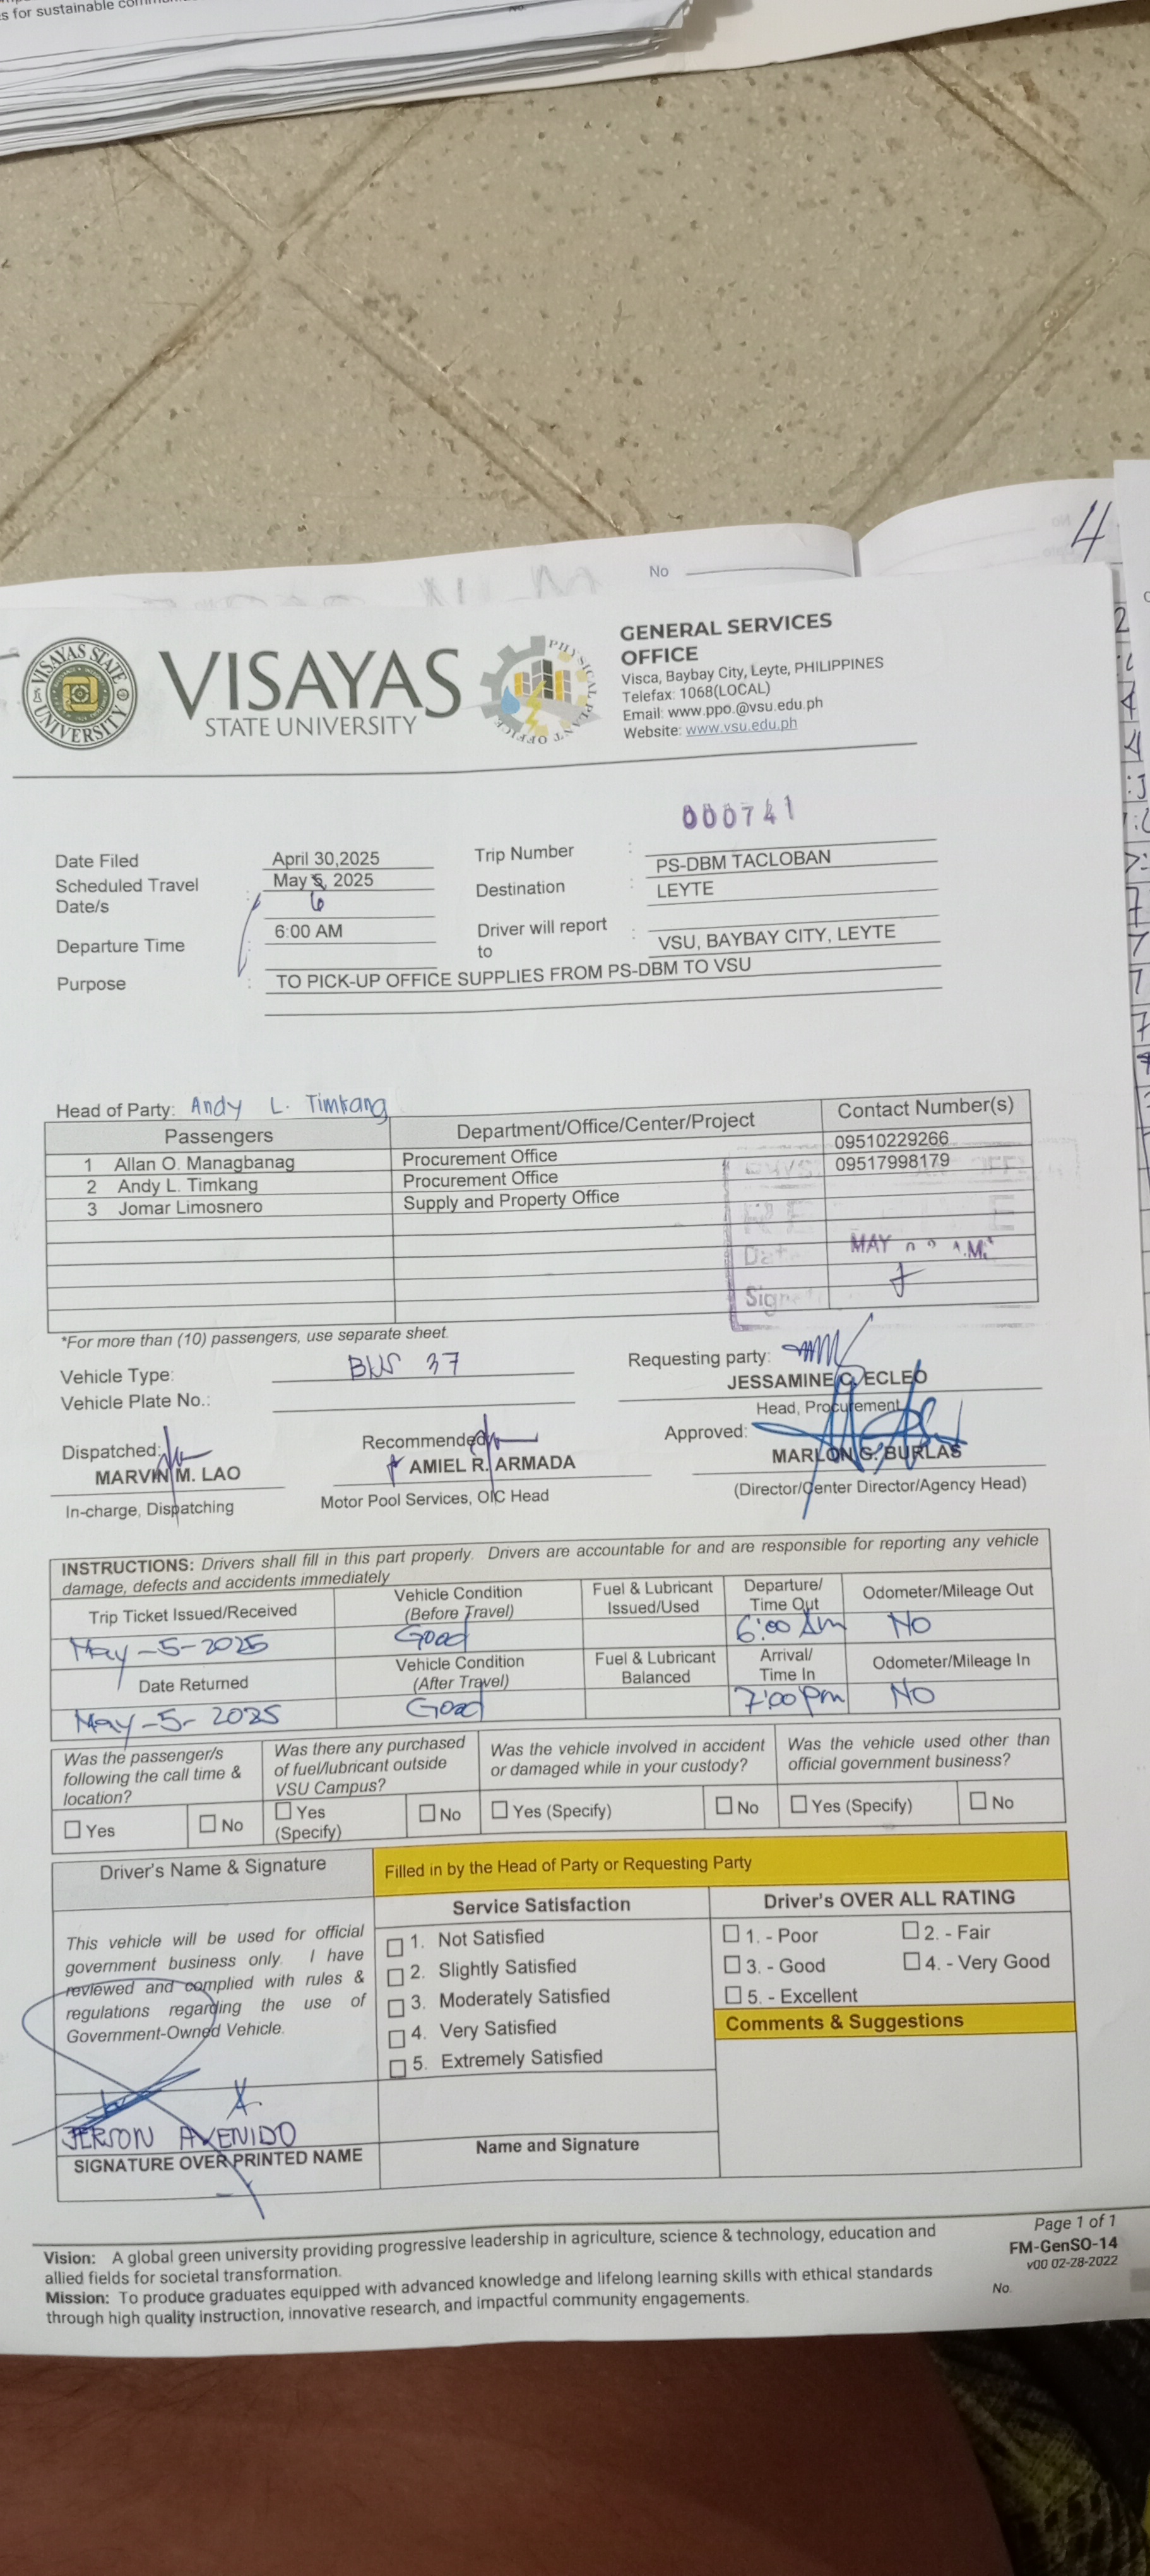 s for sustainable
No.
No
4
VISAYAS STATE UNIVERSITY
VISAYAS
STATE UNIVERSITY
PHYSICAL PLANT OFFICE
GENERAL SERVICES
OFFICE
Visca, Baybay City, Leyte, PHILIPPINES
Telefax: 1068(LOCAL)
Email: www.ppo.@vsu.edu.ph
Website: www.vsu.edu.ph
000741
Date Filed April 30,2025 Trip Number :
Scheduled Travel Date/s : May 5, 2025 Destination : PS-DBM TACLOBAN
6 LEYTE
Departure Time : 6:00 AM Driver will report to : VSU, BAYBAY CITY, LEYTE
Purpose : TO PICK-UP OFFICE SUPPLIES FROM PS-DBM TO VSU
Head of Party: Andy L. Timkang
Passengers Department/Office/Center/Project Contact Number(s)
1 Allan O. Managbanag Procurement Office 09510229266
2 Andy L. Timkang Procurement Office 09517998179
3 Jomar Limosnero Supply and Property Office
MAY
Date
Sign
*For more than (10) passengers, use separate sheet.
Vehicle Type: BUS 37
Vehicle Plate No.:
Requesting party:
JESSAMINE C. ECLEO
Head, Procurement
Dispatched: Recommended Approved:
MARVIN M. LAO AMIEL R. ARMADA MARLON G. BURLAS
In-charge, Dispatching Motor Pool Services, OIC Head (Director/Center Director/Agency Head)
INSTRUCTIONS: Drivers shall fill in this part properly. Drivers are accountable for and are responsible for reporting any vehicle
damage, defects and accidents immediately
Trip Ticket Issued/Received Vehicle Condition (Before Travel) Fuel & Lubricant Issued/Used Departure/ Time Out Odometer/Mileage Out
May-5-2025 Good 6:00 Am NO
Date Returned Vehicle Condition (After Travel) Fuel & Lubricant Balanced Arrival/ Time In Odometer/Mileage In
May-5-2025 Good 7:00 pm NO
Was the passenger/s following the call time & location? Was there any purchased of fuel/lubricant outside VSU Campus? Was the vehicle involved in accident or damaged while in your custody? Was the vehicle used other than official government business?
Yes No Yes (Specify) No Yes (Specify) No Yes (Specify) No
Driver's Name & Signature Filled in by the Head of Party or Requesting Party
Service Satisfaction Driver's OVER ALL RATING
This vehicle will be used for official
government business only. I have
reviewed and complied with rules &
regulations regarding the use of
Government-Owned Vehicle.
1. Not Satisfied
2. Slightly Satisfied
3. Moderately Satisfied
4. Very Satisfied
5. Extremely Satisfied
1. - Poor 2. - Fair
3. - Good 4. - Very Good
5. - Excellent
Comments & Suggestions
JERSON AVENIDO
SIGNATURE OVER PRINTED NAME Name and Signature
Vision: A global green university providing progressive leadership in agriculture, science & technology, education and
allied fields for societal transformation.
Mission: To produce graduates equipped with advanced knowledge and lifelong learning skills with ethical standards
through high quality instruction, innovative research, and impactful community engagements.
Page 1 of 1
FM-GenSO-14
v00 02-28-2022
No.